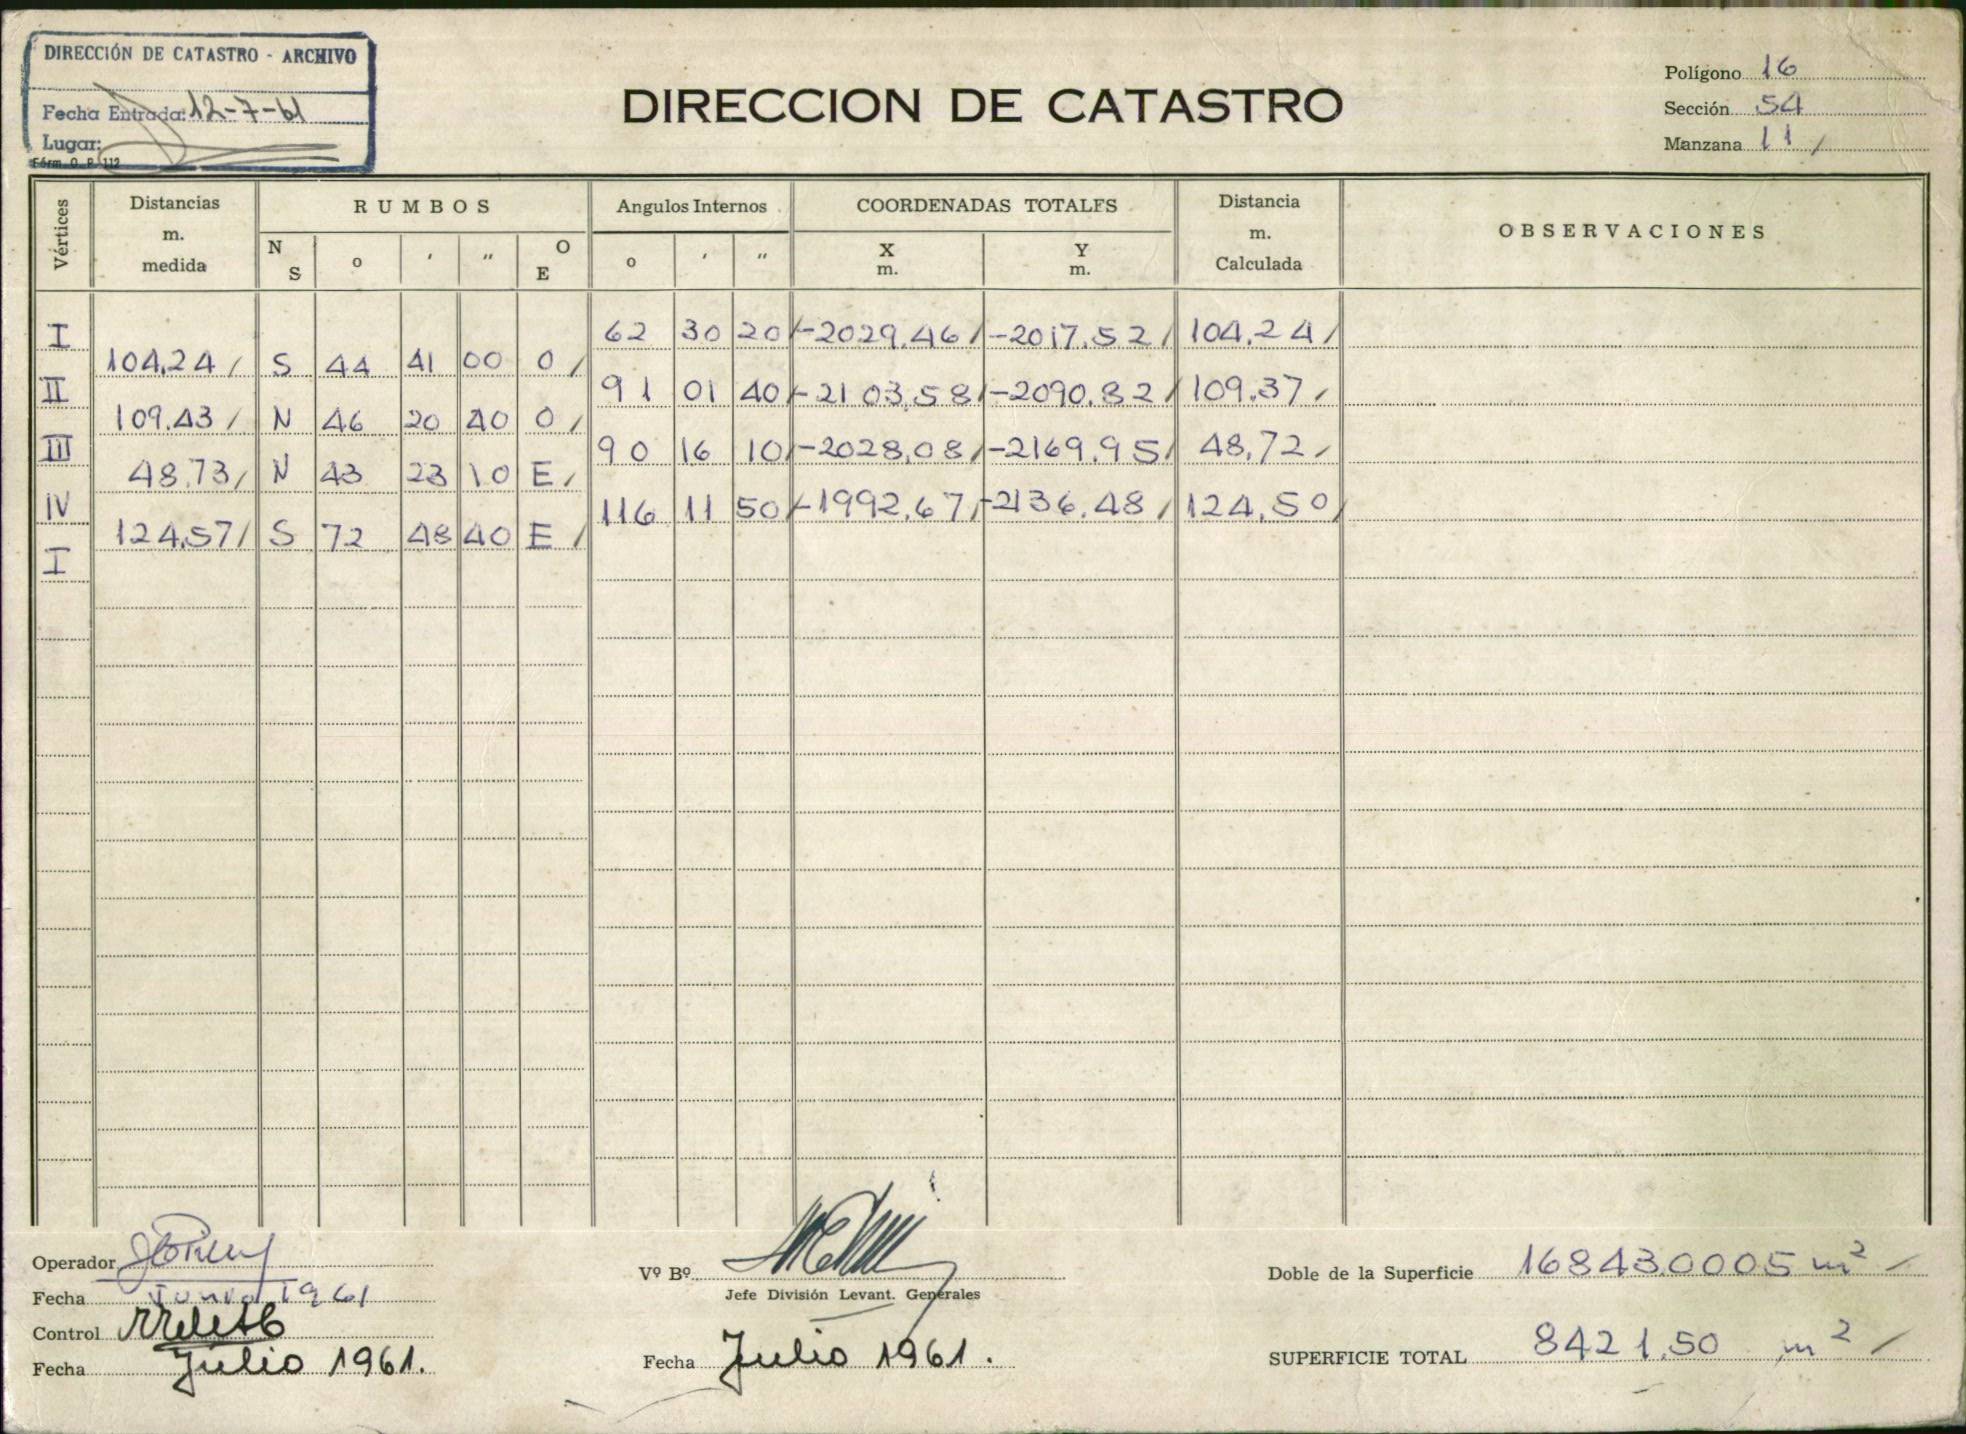 DIRECCIÓN DE CATASTRO - ARCHIVO
Fecha Entrada: 12-7-61
Lugar:
Fórm. O. P. 112
DIRECCION DE CATASTRO
Polígono 16
Sección 54
Manzana 11 /
Vértices Distancias m. medida RUMBOS Angulos Internos COORDENADAS TOTALES Distancia m. Calculada OBSERVACIONES
N S o ' " O E o ' " X m. Y m.
I 62 30 20 /-2029,46 / -2017,52 / 104,24 /
104,24 / S 44 41 00 O /
II 91 01 40 /-2103,58 / -2090,82 / 109,37 /
109,43 / N 46 20 40 O /
III 90 16 10 /-2028,08 / -2169,95 / 48,72 /
48,73 / N 43 23 10 E /
IV 116 11 50 /-1992,67 / -2136,48 / 124,50 /
124,57 / S 72 48 40 E /
I
Operador
Fecha Junio 1961
Control
Fecha Julio 1961.
Vº Bº
Jefe División Levant. Generales
Fecha Julio 1961.
Doble de la Superficie 16843.0005 m² /
SUPERFICIE TOTAL 8421,50 m² /